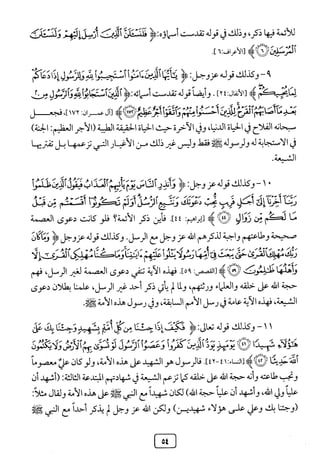 للأئمة فيها ذكر، وذلك في قوله تقدست أسماؤه: ﴿ فَلَنَسْـَٔلَنَّ ٱلَّذِينَ أُرْسِلَ إِلَيْهِمْ وَلَنَسْـَٔلَنَّ
ٱلْمُرْسَلِينَ ﴿٦﴾ ﴾ [الأعراف: ٦].
٩- وكذلك قوله عز وجل: ﴿ يَـٰٓأَيُّهَا ٱلَّذِينَ ءَامَنُوا۟ ٱسْتَجِيبُوا۟ لِلَّهِ وَلِلرَّسُولِ إِذَا دَعَاكُمْ
لِمَا يُحْيِيكُمْ ﴾ [الأنفال: ٢٤]. وأيضاً قوله تقدست أسمائه: ﴿ ٱلَّذِينَ ٱسْتَجَابُوا۟ لِلَّهِ وَٱلرَّسُولِ مِنۢ
بَعْدِ مَآ أَصَابَهُمُ ٱلْقَرْحُ لِلَّذِينَ أَحْسَنُوا۟ مِنْهُمْ وَٱتَّقَوْا۟ أَجْرٌ عَظِيمٌ ﴿١٧٢﴾ ﴾ [آل عمران: ١٧٢]، فجعل
سبحانه الفلاح في الحياة الدنيا، وفي الآخرة حيث الحياة الحقيقة الطيبة (الأجر العظيم: الجنة)
في الاستجابة له ولرسوله ﷺ فقط وليس غير ذلك من الأغيار التي تزعمها بل تفتريها
الشيعة.
١٠- وكذلك قوله عز وجل: ﴿ وَأَنذِرِ ٱلنَّاسَ يَوْمَ يَأْتِيهِمُ ٱلْعَذَابُ فَيَقُولُ ٱلَّذِينَ ظَلَمُوا۟
رَبَّنَآ أَخِّرْنَآ إِلَىٰٓ أَجَلٍ قَرِيبٍ نُّجِبْ دَعْوَتَكَ وَنَتَّبِعِ ٱلرُّسُلَ أَوَلَمْ تَكُونُوٓا۟ أَقْسَمْتُم مِّن قَبْلُ
مَا لَكُم مِّن زَوَالٍ ﴿٤٤﴾ ﴾ [إبراهيم: ٤٤]. فأين ذكر الأئمة؟ فلو كانت دعوى العصمة
صحيحة وطاعتهم واجبة لذكرهم الله عز وجل مع الرسل. وكذلك قوله عز وجل ﴿ وَمَا كَانَ
رَبُّكَ مُهْلِكَ ٱلْقُرَىٰ حَتَّىٰ يَبْعَثَ فِىٓ أُمِّهَا رَسُولًا يَتْلُوا۟ عَلَيْهِمْ ءَايَـٰتِنَا وَمَا كُنَّا مُهْلِكِى ٱلْقُرَىٰٓ إِلَّا
وَأَهْلُهَا ظَـٰلِمُونَ ﴿٥٩﴾ ﴾ [القصص: ٥٩]. فهذه الآية تنفي دعوى العصمة لغير الرسل، فهم
حجة الله على خلقه والعلماء ورثتهم، ولما لم يأتي ذكر أحد غير الرسل، علمنا بطلان دعوى
الشيعة، فهذه الآية عامة في رسل الأمم السابقة، وفي رسول هذه الأمة ﷺ.
١١- وكذلك قوله تعالى: ﴿ فَكَيْفَ إِذَا جِئْنَا مِن كُلِّ أُمَّةٍۭ بِشَهِيدٍ وَجِئْنَا بِكَ عَلَىٰ
هَـٰٓؤُلَآءِ شَهِيدًا ﴿٤١﴾ يَوْمَئِذٍ يَوَدُّ ٱلَّذِينَ كَفَرُوا۟ وَعَصَوُا۟ ٱلرَّسُولَ لَوْ تُسَوَّىٰ بِهِمُ ٱلْأَرْضُ وَلَا يَكْتُمُونَ
ٱللَّهَ حَدِيثًا ﴿٤٢﴾ ﴾ [النساء: ٤١-٤٢]. فالرسول هو الشهيد على هذه الأمة، ولو كان عليٌّ معصوماً
وتجب طاعته وأنه حجة الله على خلقه كما تزعم الشيعة في شهادتهم المبتدعة الثالثة: (أشهد أن
علياً ولي الله، وأشهد أن علياً حجة الله) لكان شهيداً مع النبي ﷺ على هذه الأمة ولقال مثلاً:
(وجئنا بك وعلي على هؤلاء شهيدين) ولكن الله عز وجل لم يذكر أحداً مع النبي ﷺ
٥٤